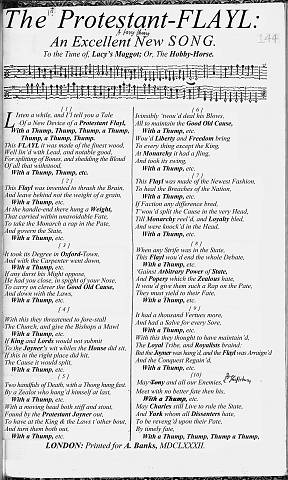 The Protestant-FLAYL:
An Excellent New SONG.
To the Tune of, Lacy's Maggot; Or, The Hobby-Horse.
144
[1]
Listen a while, and I'l tell you a Tale
Of a New Device of a Protestant Flayl,
With a Thump, Thump, Thump, a Thump,
Thump, a Thump, Thump.
This FLAYL it was made of the finest wood,
Well lin'd with Lead, and notable good,
For splitting of Bones, and shedding the Blood
Of all that withstood,
With a Thump, Thump, etc.
[2]
This Flayl was invented to thrash the Brain,
And leave behind not the weight of a grain,
With a Thump, etc.
At the handle-end there hung a Weight,
That carried within unavoidable Fate,
To take the Monarch a rap in the Pate,
And govern the State,
With a Thump, etc.
[3]
It took its Degree in Oxford-Town,
And with the Carpenter went down,
With a Thump, etc.
If any durst his Might oppose,
He had you close, in spight of your Nose,
To carry on clever the Good Old Cause,
And down with the Laws,
With a Thump, etc.
[4]
With this they threatened to fore-stall
The Church, and give the Bishops a Mawl
With a Thump, etc.
If King and Lords would not submit
To the Joyner's wit whiles the House did sit,
If this in the right place did hit,
The Cause it would split,
With a Thump, etc.
[5]
Two handfuls of Death, with a Thong hung fast
By a Zealot who hang'd himself at last,
With a Thump, etc.
With a moving head both stiff and stout,
Found by the Protestant Joyner out,
To have at the King & the Laws t'other bout,
And turn them both out,
With a Thump, etc.
[6]
Invisibly 'twou'd deal his Blows,
All to maintain the Good Old Cause,
With a Thump, etc.
Wou'd Liberty and Freedom bring
To every thing except the King.
At Monarchy it had a fling,
And took its swing,
With a Thump, etc.
[7]
This Flayl was made of the Newest Fashion,
To heal the Breaches of the Nation,
With a Thump, etc.
If Faction any difference bred,
T'wou'd split the Cause in the very Head,
Till Monarchy reel'd, and Loyalty bled,
And were knock'd in the Head.
With a Thump, etc.
[8]
When any Strife was in the State,
This Flayl wou'd end the whole Debate,
With a Thump, etc.
'Gainst Arbitrary Power of State,
And Popery which the Zealous hate,
It wou'd give them such a Rap on the Pate,
They must yield to their Fate,
With a Thump, etc.
[9]
It had a thousand Vertues more,
And had a Salve for every Sore,
With a Thump, etc.
With this they thought to have maintain'd,
The Loyal Tribe, and Royallist braind:
But the Joyner was hang'd, and the Flayl was Arraign'd
And the Conquest Regain'd,
With a Thump, etc.
[10]
May Tony and all our Enemies,
Meet with no better fate then his,
With a Thump, etc.
May Charles still Live to rule the State,
And York whom all Dissenters hate,
To be reveng'd upon their Pate,
By timely fate,
With a Thump, Thump, Thump a Thump,
LONDON: Printed for A. Banks, MDCLXXXII.